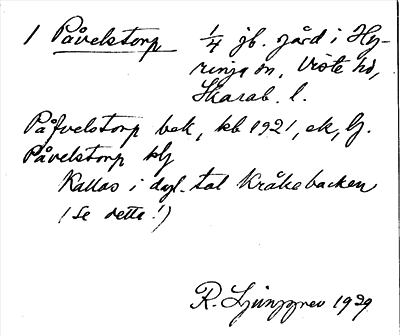 1 Påvelstorp ¼ jb. gård i Hy-
ringa sn, Viste hd,
Skarab. l.
Påfvelstorp bek, kb 1921, ek, lj.
Påvelstorp klj
Kallas i dagl. tal Kråkebacken
(Se detta!)
R. Ljunggren 1929